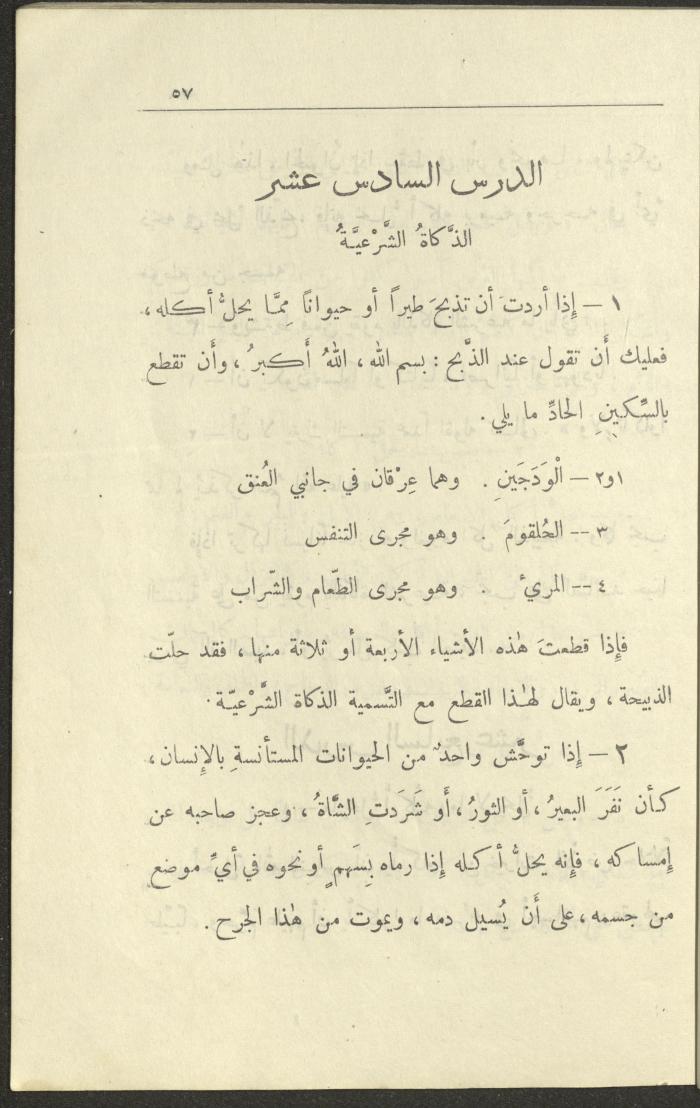 ٥٧
الدرس السادس عشر
الذَّكاةُ الشَّرْعيَّةُ
١ — إِذا أردتَ أن تذبحَ طيراً أو حيواناً مِمَّا يحلُّ أكله،
فعليك أَن تقول عند الذَّبح : بسم الله، اللهُ أَكبرُ ، وأَن تقطع
بالسِّكينِ الحادِّ ما يلي .
١و٢ — الْوَدَجَينِ . وهما عِرْقان في جانبي العُنق
٣ -- الحُلقومَ . وهو مجرى التنفس
٤ -- المريءَ . وهو مجرى الطّعام والشّراب
فإِذا قطعتَ هٰذه الأشياء الأربعة أو ثلاثة منها ، فقد حلّت
الذبيحة ، ويقال لهٰذا القطع مع التَّسمية الذكاة الشَّرْعيّة .
٢ — إِذا توحَّش واحدٌ من الحيوانات المستأنسةِ بالإِنسان،
كأن نَفَرَ البعيرُ ، أو الثورُ ، أَو شَرَدتِ الشَّاةُ ، وعجز صاحبه عن
إِمساكه ، فإِنه يحلُّ أكله إِذا رماه بِسَهمٍ أو نحوه في أيِّ موضع
من جسمه ، على أَن يُسيل دمه ، ويموت من هٰذا الجرح .